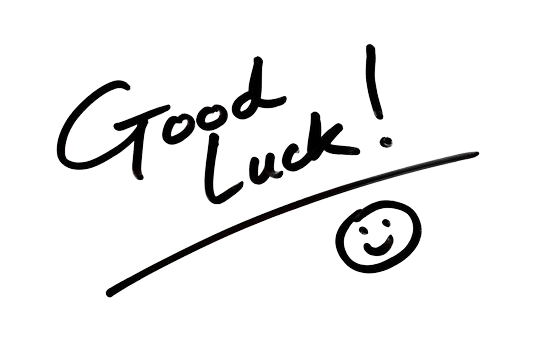 Good
Luck!